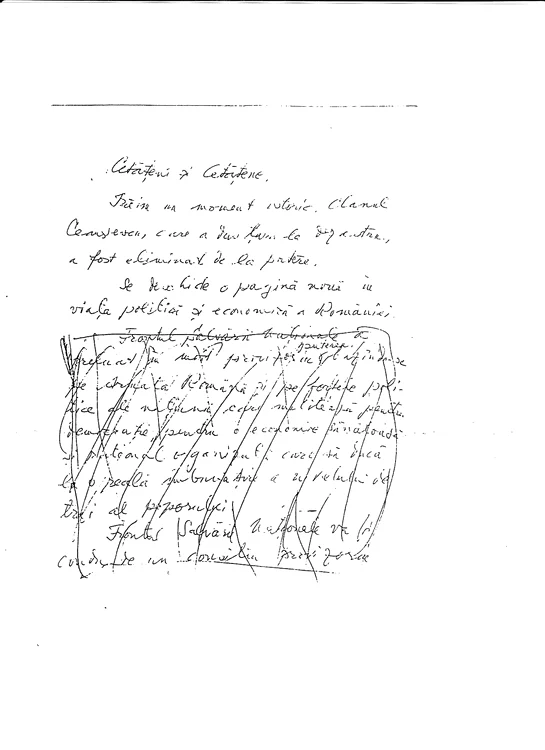 Cetățeni și Cetățene,
Trăim un moment istoric. Clanul
Ceaușescu, care a dus țara la dezastru,
a fost eliminat de la putere.
Se deschide o pagină nouă în
viața politică și economică a României.
Frontul Salvării Naționale a
puterea
preluat în mod provizoriu bazîndu-se
pe armata Română și pe forțele poli-
tice ale națiunii care militează pentru
democrație, pentru o economie sănătoasă
și rațional organizată care să ducă
la o reală îmbunătățire a nivelului de
trai al poporului.
Frontul Salvării Naționale va fi
condus de un consiliu provizoriu